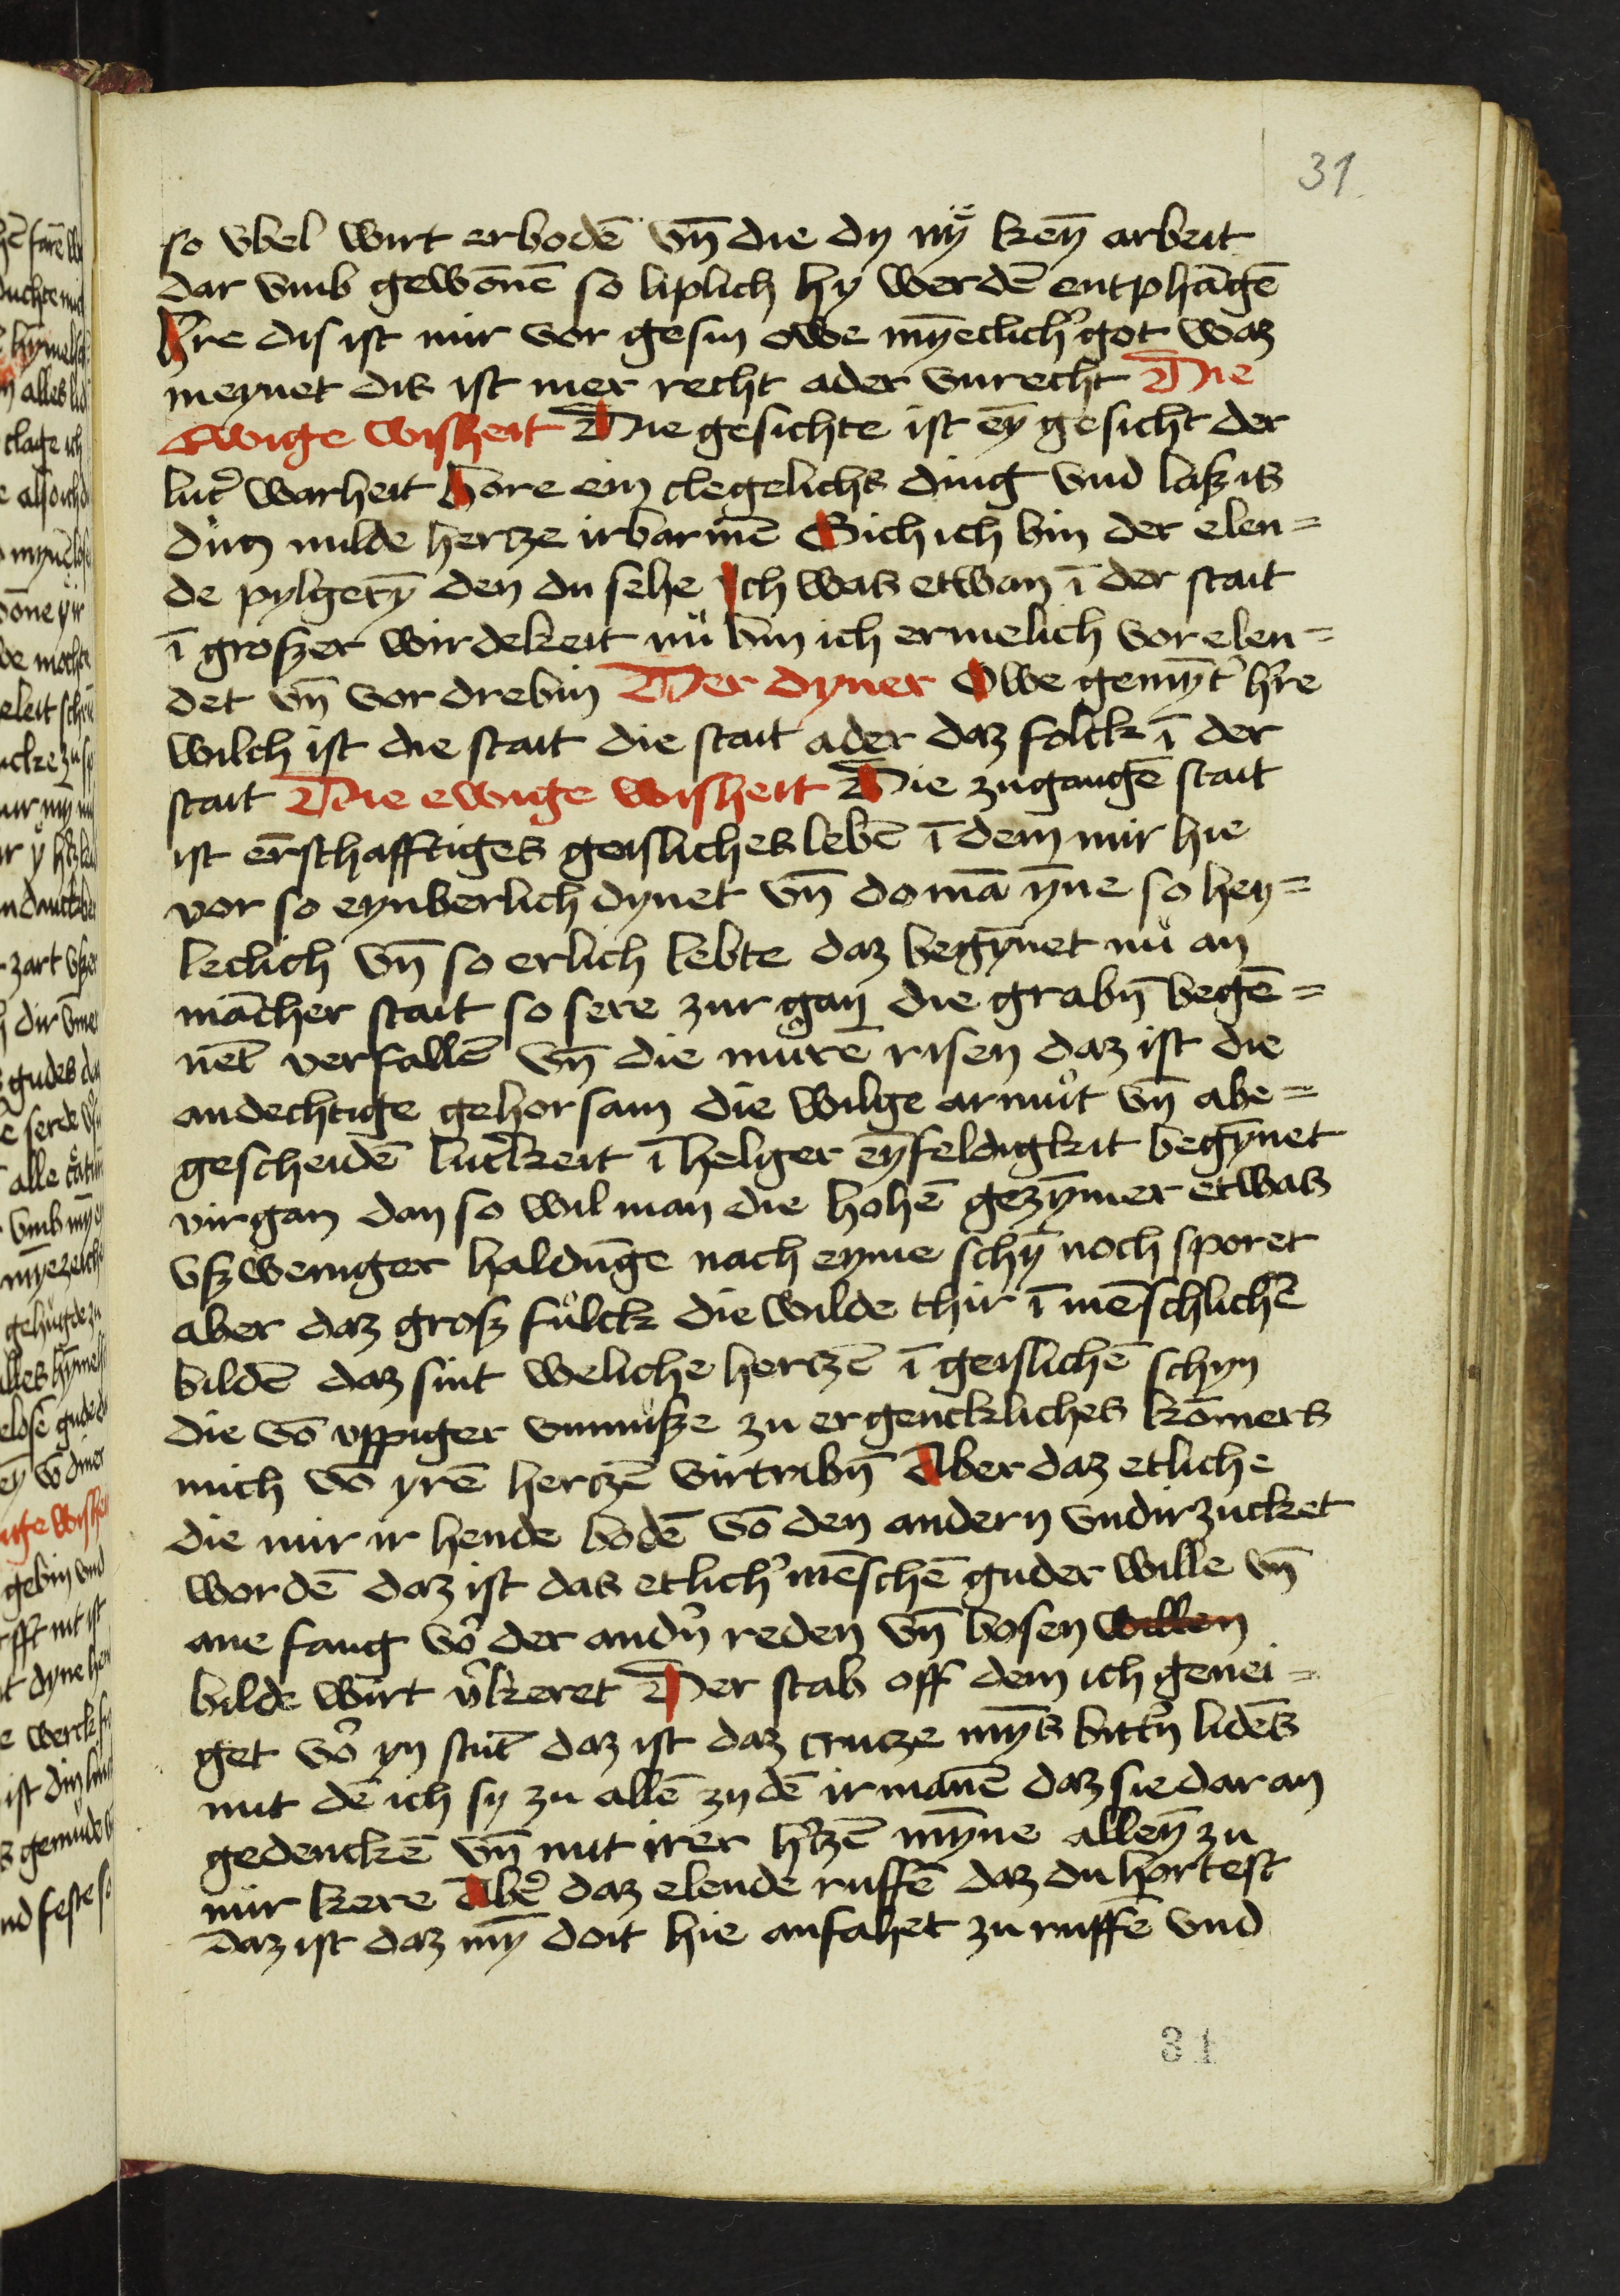 31
so vbel wirt erbodē vn̄ die dy nÿ keȳ arbeit
dar vmb gewōnē so liplich hy werdē entphāgē
h̓re dis ist mir vor gesin owe mȳeclich̓ got waz
meynet dis ist mer recht ader vnrecht Die
ewige wiszheit Die gesichte ist eȳ gesicht der
lut̓ warheit hore ein clegelichs ding vnd lasz is
din milde hertze irbarmē Sich ich bin der elen=
de pylgerȳ den du sehe Ich was etwan ī der stait
ī groszer wirdekeit nů bin ich ermelich vor elen=
det vn̄ vor drebin Der dyner Owe gemȳt̓ h̓re
wilch ist die stait die stait ader daz folck ī der
stait Die ewige wisheit Die zugangē stait
ist ērschafftiges geisliches lebē ī dem mir hie
vor so eynberlich dynet vn̄ do mā ȳne so hey=
leclich vn̄ so erlich lebte daz begȳnet nů an
mācher stait so sere zur gan die grabn̄ begē=
net verfallē vn̄ die můrē risen daz ist die
andechtige gehorsam die wilge armůt vn̄ abe=
gescheidē lut̓keit ī helger eȳfeldigkit begȳnet
virgan dan so wil man die hohē gezȳmer etwas
vszweniger haldūge nach eyme schȳ noch sporet
aber daz grosz fůlck die wilde thir ī mēschlichē
bildē daz sint weliche hertzē ī geislichē schyn
die vō vppiger vnmůsze zu ergenckliches kōmers
mich vō yrē hertzē virtribn̄ Aber daz etliche
die mir ir hende bodē vō den andern vndirzucket
wordē daz ist das etlich̓ mēschē guder wille vn̄
ane fang vō der andn̓ reden vn̄ bosen willen
bilde wirt v̓keret Der stab off dem ich genei=
get vō yn stūt daz ist daz crutze mȳs bittn̓ lidēs
mit dē ich sy zu allē zydē irmanē daz sie dar an
gedenckē vn̄ mit irer h̓tzē mȳne alleȳ zu
mir kere Ab̓e daz elende ruffē daz du hortest
daz ist daz mȳ doit hie anfahet zu ruffē vnd
31